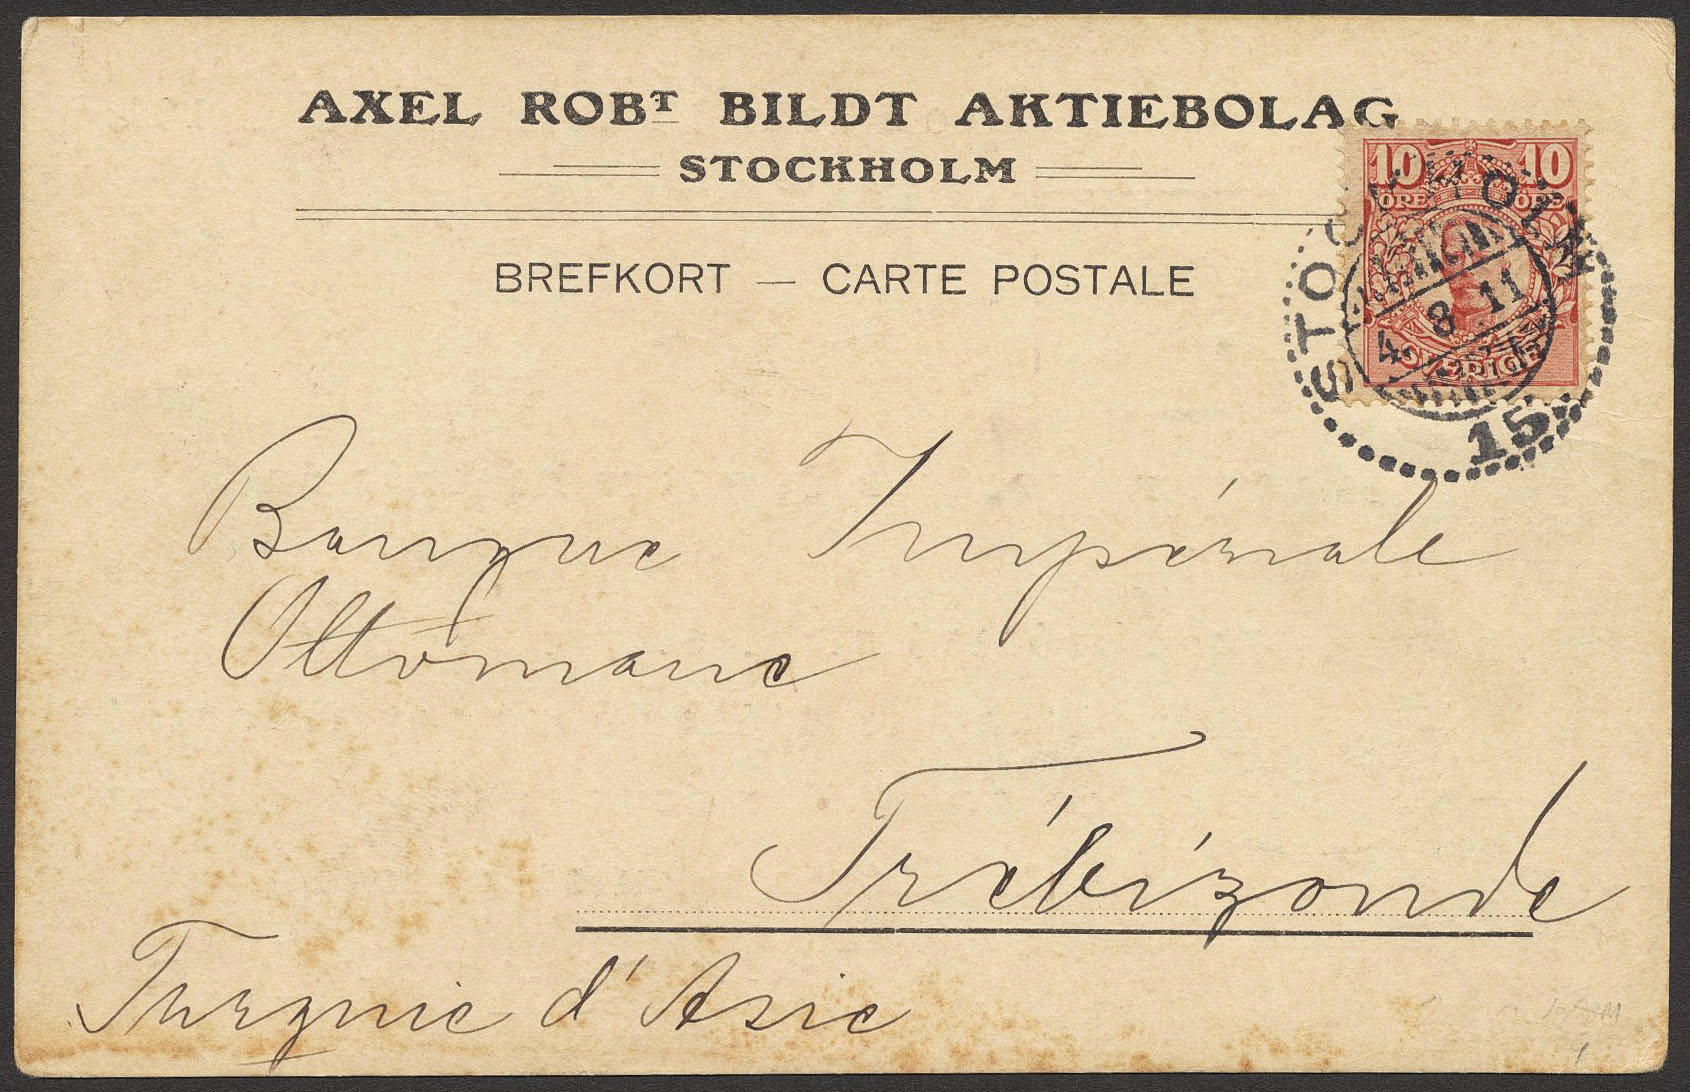 AXEL ROBT BILDT AKTIEBOLAG
STOCKHOLM
BREFKORT — CARTE POSTALE
10 10
ÖRE ÖRE
SVERIGE
STOCKHOLM
4. 8. 11
15
Banque Impériale
Ottomane
Trébizonde
Turquie d'Asie